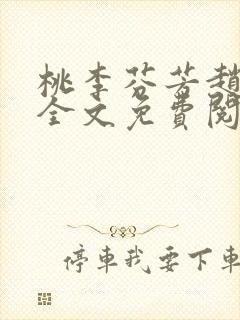 桃李芬芳趙
全文免費閱
停車我要下車